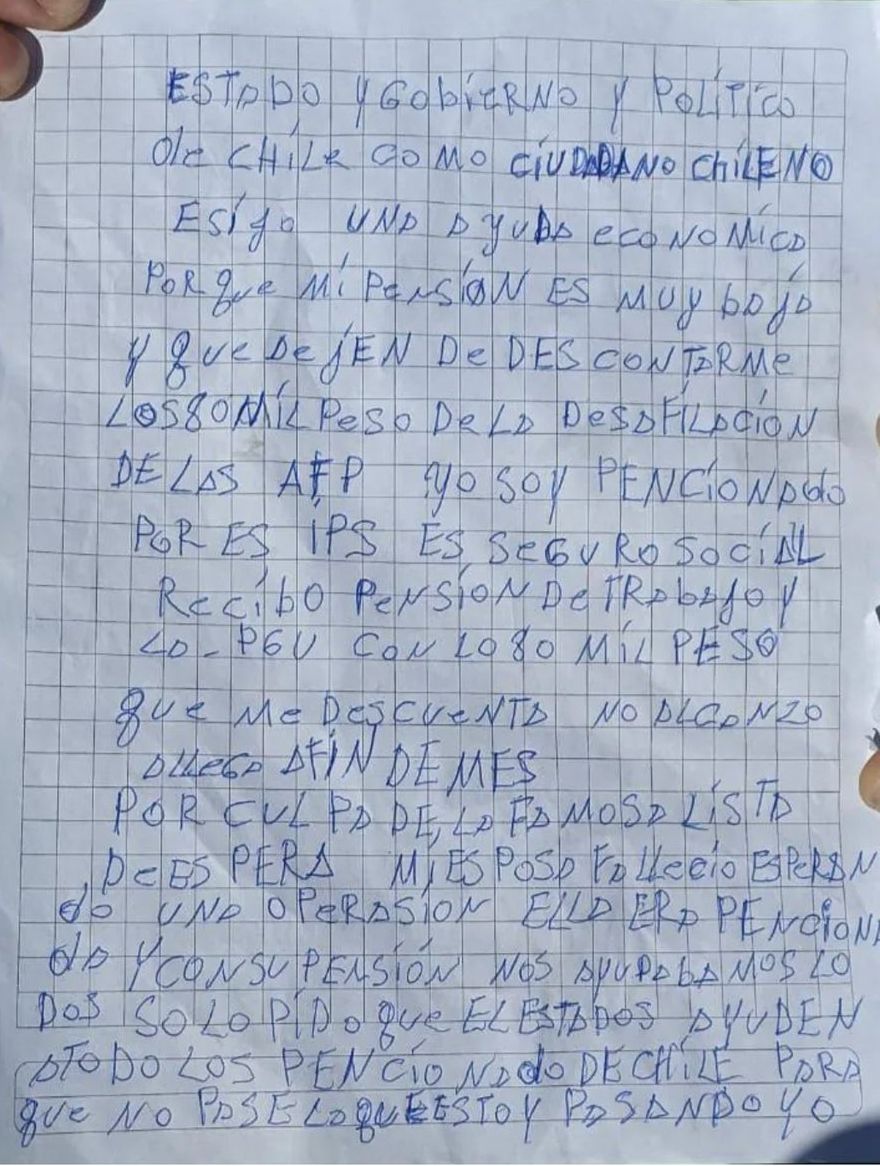 ESTADO Y GobiERNO Y POLíTico
de CHiLe COMO CiUDADANO CHiLENO
ESijo UNA AyUDA ecoNOMicA
PORque Mi PeNSiON ES MUy bAjA
y que DejEN De DESCONTARMe
LOS 80 MiL PeSO De LA DeSAFiLAciON
DE LAS AFP yo SOY PENCiONAdo
POR ES iPS ES SeGURO SociAL
ReciBO PeNSiON De TRAbAjO Y
LA - PGU CON LO 80 MiL PESO
que Me DeSCUeNTA NO ALCANZO
ALLEGA AFiN DE MES
POR CULPA DE, LA FAMOSA LiSTA
De ESPERA Mi ESPOSA FALLecio ESPeRAN
do UNA OPeRASiON ELLA ERA PENciONA
dA Y CON SU PENSiÓN NOS AyUDAbAMOS LO
DOS SOLO PiDo que EL ESTADOS AYUDEN
ATODO LOS PENCiONAdo DE CHiLE PARA
que NO PASE LO QUE ESTOY PASANDO YO